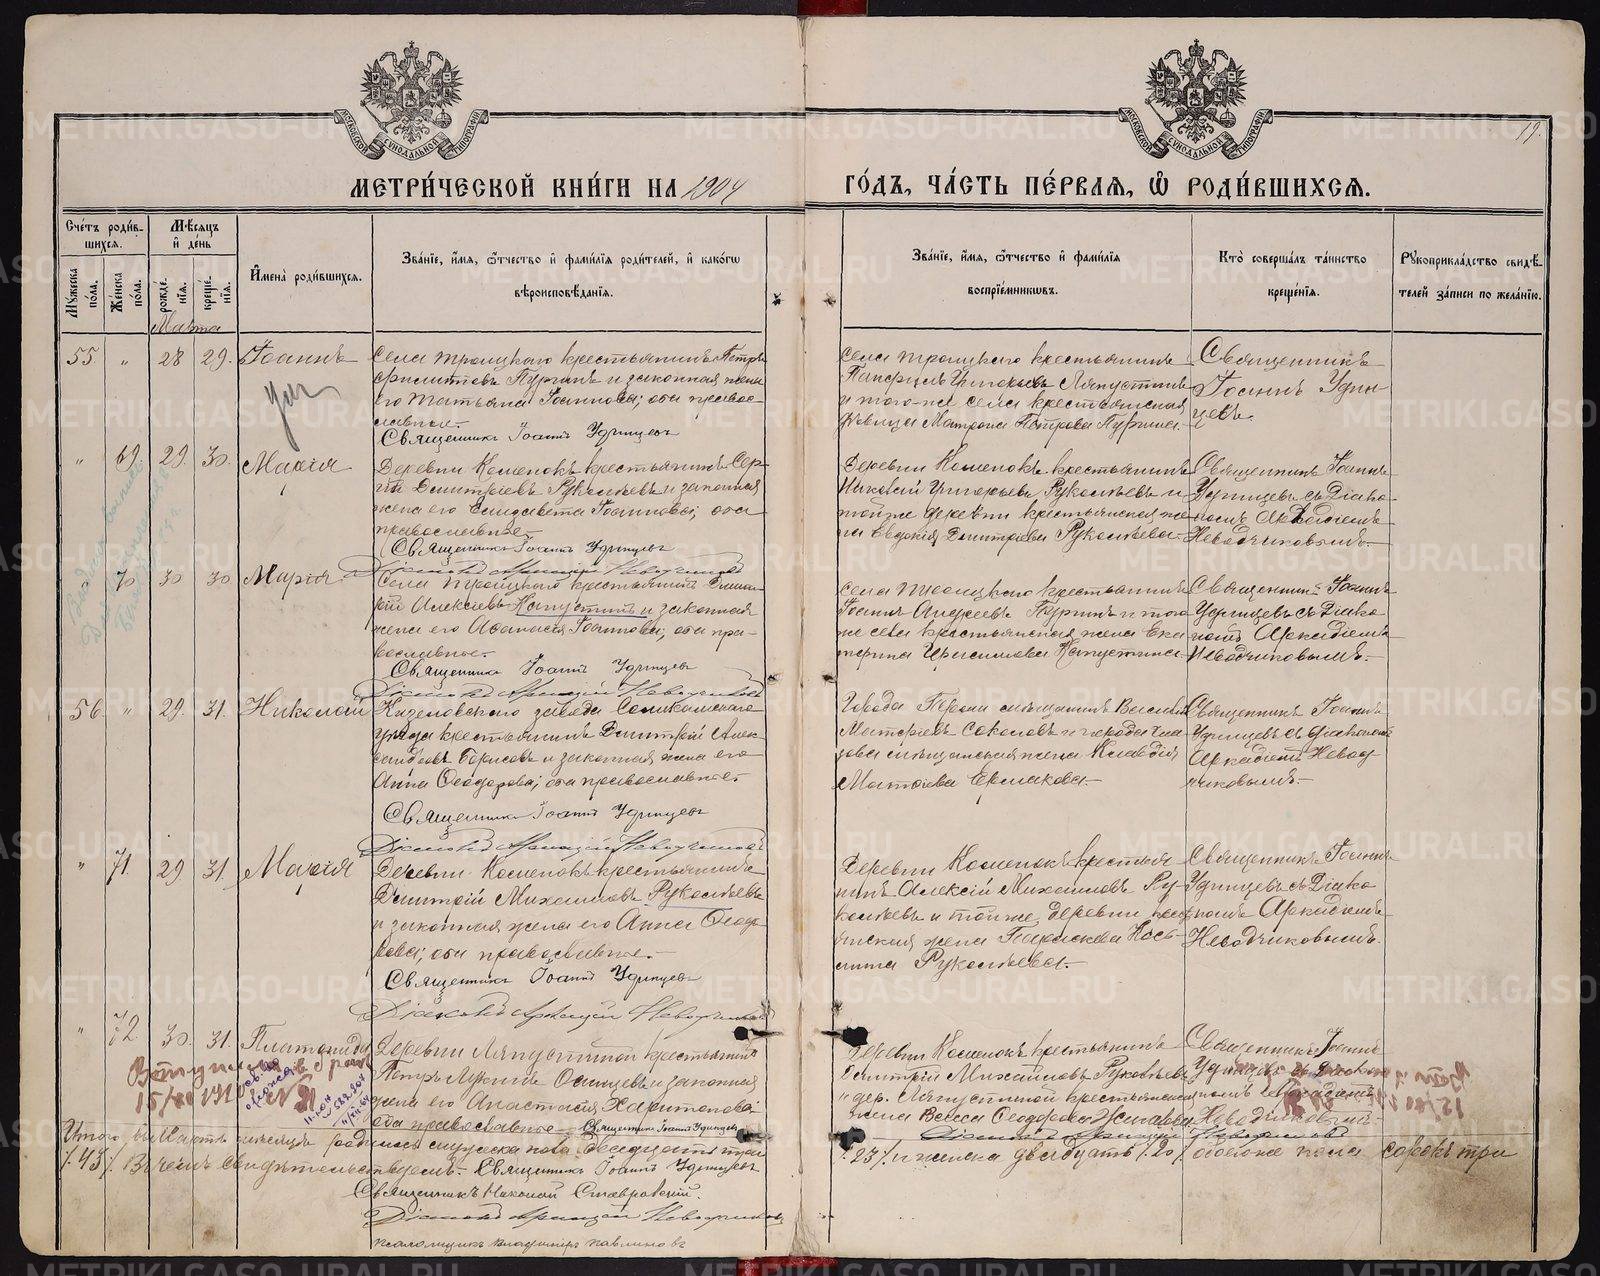 МОСКОВСКОЙ СѴНОДАЛЬНОЙ ТИПОГРАФІИ
МОСКОВСКОЙ СѴНОДАЛЬНОЙ ТИПОГРАФІИ
19.
МЕТРИ́ЧЕСКОЙ КНИ́ГИ НА 1904
ГО́ДЪ, ЧА́СТЬ ПЕ́РВАЯ, Ѡ҆ РОДИ́ВШИХСЯ.
Сче́тъ роди́в-
шихся.
Мꙋжеска по́ла.
Же́нска по́ла.
Мѣ́сяцъ и҆ де́нь
рожде́-нїя.
креще́-нїя.
И҆мена̀ роди́вшихся.
Зва́нїе, и҆́мя, ѻ҆́тчество и҆ фами́лїя роди́телей, и҆ како́гѡ
вѣроисповѣ́данїя.
Зва́нїе, и҆́мя, ѻ҆́тчество и҆ фами́лїя
воспрїе́мникѡвъ.
Кто̀ соверша́лъ та́инство
креще́нїя.
Рꙋкоприкла́дство свидѣ́-
телей за́писи по жела́нїю.
Марта
55 " 28 29. Іоаннъ
Села Троицкаго крестьянинъ Петръ
Филипповъ Пургинъ и законная жена
его Татьяна Іоаннова; оба правос-
лавные.
Священникъ Іоаннъ Удинцевъ
Села Троицкаго крестьянинъ
Григорьевъ Ляпустинъ
и того-же села крестьянская
дѣвица Матрона Петрова Пургина.
Священникъ
Іоаннъ Удин-
цевъ.
" 69. 29. 30. Марія
Деревни Кошенокъ крестьянинъ Сер-
гій Димитріевъ Рукомѣевъ и законная
жена его Елисавета Іоаннова; оба
православные.
Священникъ Іоаннъ Удинцевъ
Діаконъ Аркадій Неводчиковъ
Деревни Кошенокъ крестьянинъ
Николай Григорьевъ Рукомѣевъ и
той же деревни крестьянская же-
на Евдокія Димитріева Рукомѣева.
Священникъ Іоаннъ
Удинцевъ съ Діако-
номъ Аркадіемъ
Неводчиковымъ.
" 70 30 30 Марія
Села Троицкаго крестьянинъ Дмит-
рій Алексіевъ Капустинъ и законная
жена его Аѳанасія Іоаннова; оба пра-
вославные.
Священникъ Іоаннъ Удинцевъ
Діаконъ Аркадій Неводчиковъ
Села Троицкаго крестьянинъ
Іоаннъ Андреевъ Пургинъ и того
же села крестьянская жена Ека-
терина Капустина.
Священникъ Іоаннъ
Удинцевъ съ Діако-
номъ Аркадіемъ
Неводчиковымъ.
56. " 29. 31. Николай
завода Соликамскаго
уѣзда крестьянинъ Димитрій Алек-
сандровъ Борисовъ и законная жена его
Анна Ѳеодорова; оба православные.
Священникъ Іоаннъ Удинцевъ
Діаконъ Аркадій Неводчиковъ
Города мѣщанинъ Василій
Матѳіевъ Соколовъ и города
мѣщанская жена Клавдія
Матѳіева Ермакова.
Священникъ Іоаннъ
Удинцевъ съ діакономъ
Аркадіемъ Невод-
чиковымъ.
" 71. 29 31. Марія
Деревни Кошенокъ крестьянинъ
Димитрій Михаиловъ Рукомѣевъ
и законная жена его Анна Ѳеодо-
рова; оба православные.
Священникъ Іоаннъ Удинцевъ
Діаконъ Аркадій Неводчиковъ
Деревни Кошенокъ крестья-
нинъ Алексій Михаиловъ Ру-
комѣевъ и той же деревни крес-
тьянская жена Параскева Кось-
мина Рукомѣева.
Священникъ Іоаннъ
Удинцевъ съ Діако-
номъ Аркадіемъ
Неводчиковымъ.
" 72 30. 31. Платонида
Деревни Ляпустиной крестьянинъ
Петръ Лукинъ Осинцевъ и законная
жена его Анастасія Харитонова;
оба православные. Священникъ Іоаннъ Удинцевъ
Деревни Кошенокъ крестьянинъ
Димитрій Михаиловъ Рукомѣевъ
и дер. Ляпустиной крестьянская
жена Васса Ѳеодорова
Священникъ Іоаннъ
Удинцевъ съ Діако-
номъ Аркадіемъ
Неводчиковымъ.
Діаконъ Аркадій Неводчиковъ
Итого въ Мартѣ мѣсяцѣ родилось мужеска пола двадцать три
/23/ и женска двадцать /20/ обоего пола сорокъ три
/43/. Въ чемъ свидѣтельствуемъ. Священникъ Іоаннъ Удинцевъ
Священникъ Николай Ставровскій.
Діаконъ Аркадій Неводчиковъ
псаломщикъ Владиміръ Павлиновъ
METRIKI.GASO-URAL.RU